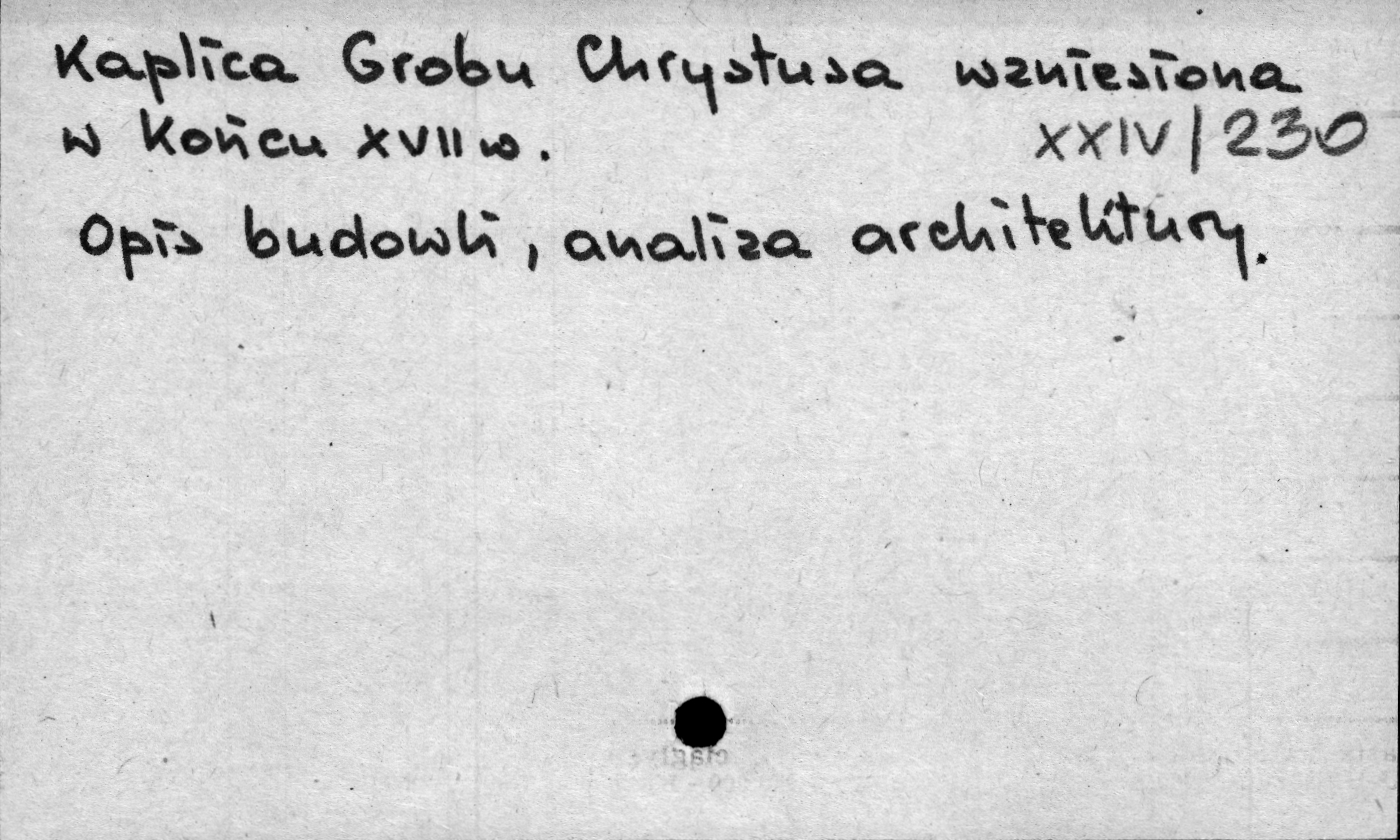 Kaplica Grobu Chrystusa wzniesiona
w końcu XVII w.
XXIV/230
Opis budowli, analiza architektury.